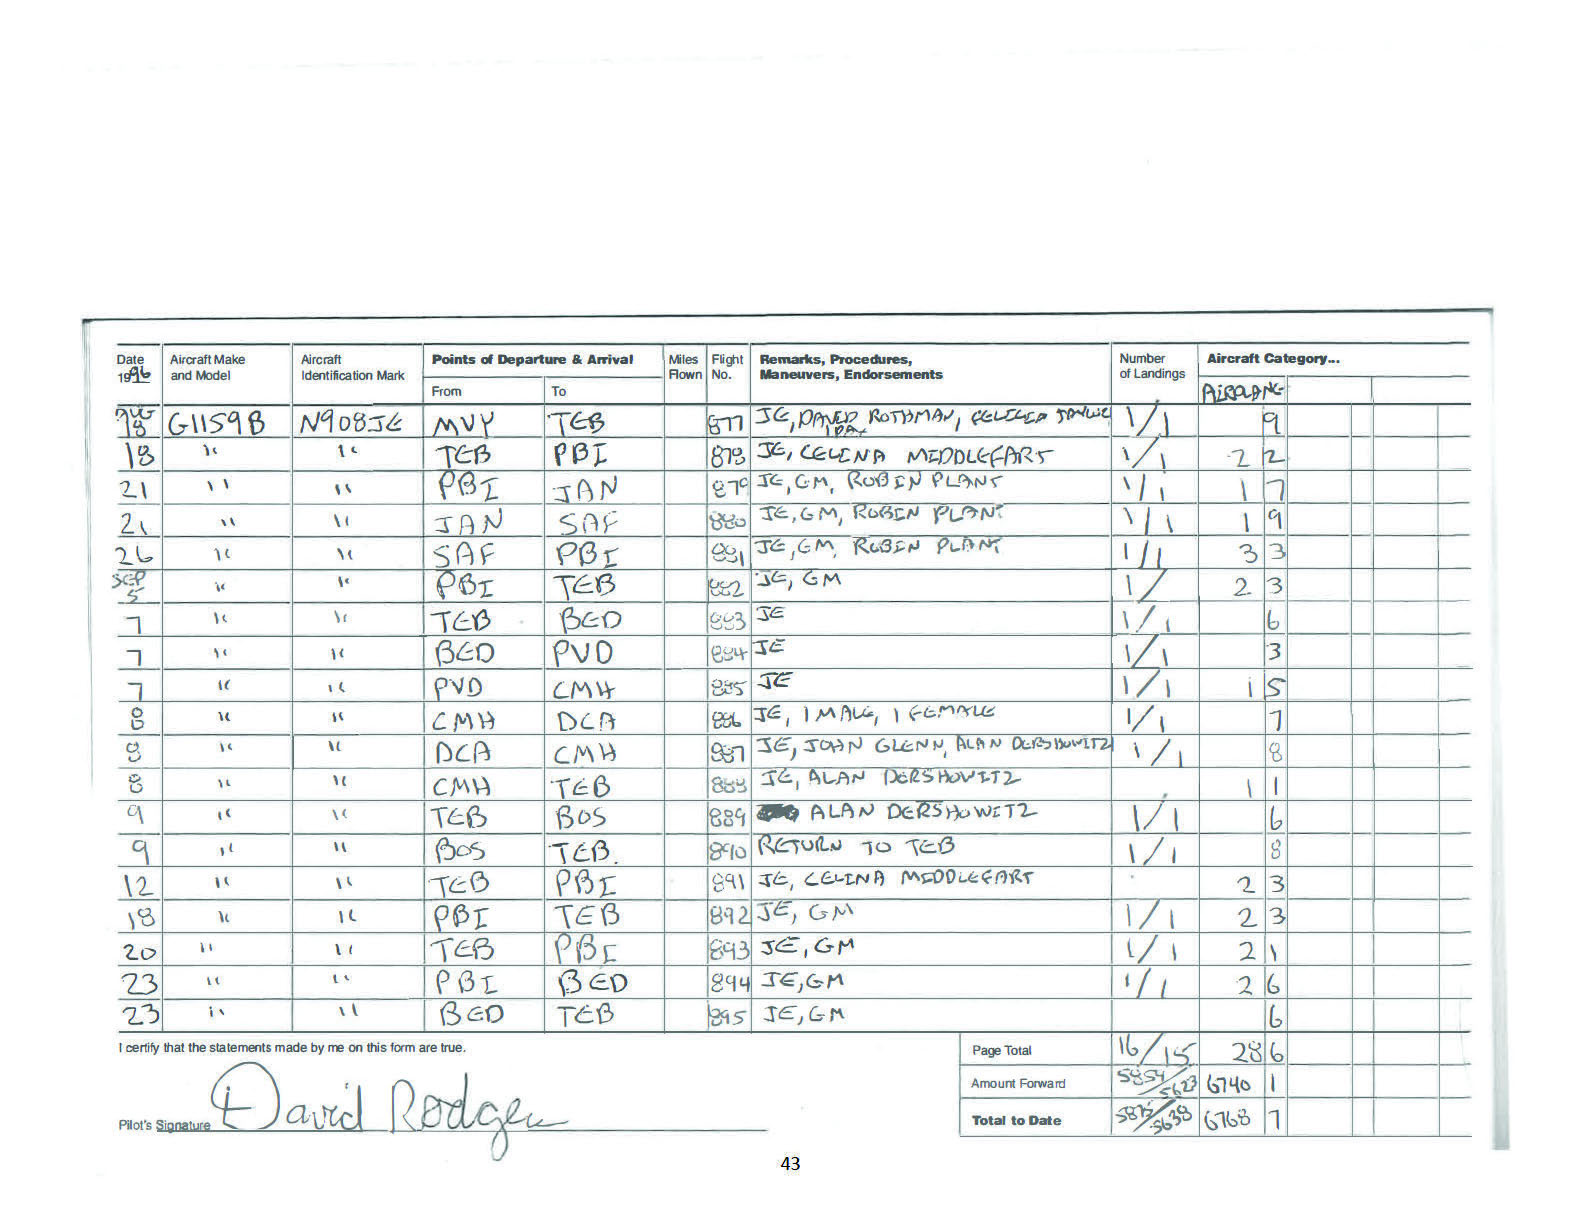 Date Aircraft Make Aircraft Points of Departure & Arrival Miles Flight Remarks, Procedures, Number Aircraft Category...
1996 and Model Identification Mark From To Flown No. Maneuvers, Endorsements of Landings AIRPLANE
AUG 18 G1159B N908JE MVY TEB 877 JE, DAVID ROTHMAN, 1/1 9
18 " " TEB PBI 878 JE, CELINA MIDDLEFART 1/1 2 2
21 " " PBI JAN 879 JE, GM, ROBIN PLANT 1/1 1 7
21 " " JAN SAF 880 JE, GM, ROBIN PLANT 1/1 1 9
26 " " SAF PBI 881 JE, GM, ROBIN PLANT 1/1 3 3
SEP 5 " " PBI TEB 882 JE, GM 1/ 2 3
7 " " TEB BED 883 JE 1/1 6
7 " " BED PVD 884 JE 1/1 3
7 " " PVD CMH 885 JE 1/1 1 5
8 " " CMH DCA 886 JE, 1 MALE, 1 FEMALE 1/1 7
8 " " DCA CMH 887 JE, JOHN GLENN, ALAN DERSHOWITZ 1/1 8
8 " " CMH TEB 888 JE, ALAN DERSHOWITZ 1 1
9 " " TEB BOS 889 ALAN DERSHOWITZ 1/1 6
9 " " BOS TEB. 890 RETURN TO TEB 1/1 8
12 " " TEB PBI 891 JE, CELINA MIDDLEFART 2 3
18 " " PBI TEB 892 JE, GM 1/1 2 3
20 " " TEB PBI 893 JE, GM 1/1 2 1
23 " " PBI BED 894 JE, GM 1/1 2 6
23 " " BED TEB 895 JE, GM 6
I certify that the statements made by me on this form are true. Page Total 16/15 28 6
Amount Forward 5859/5623 6740 1
Pilot's Signature David Rodgers Total to Date 5875/5638 6768 7
43